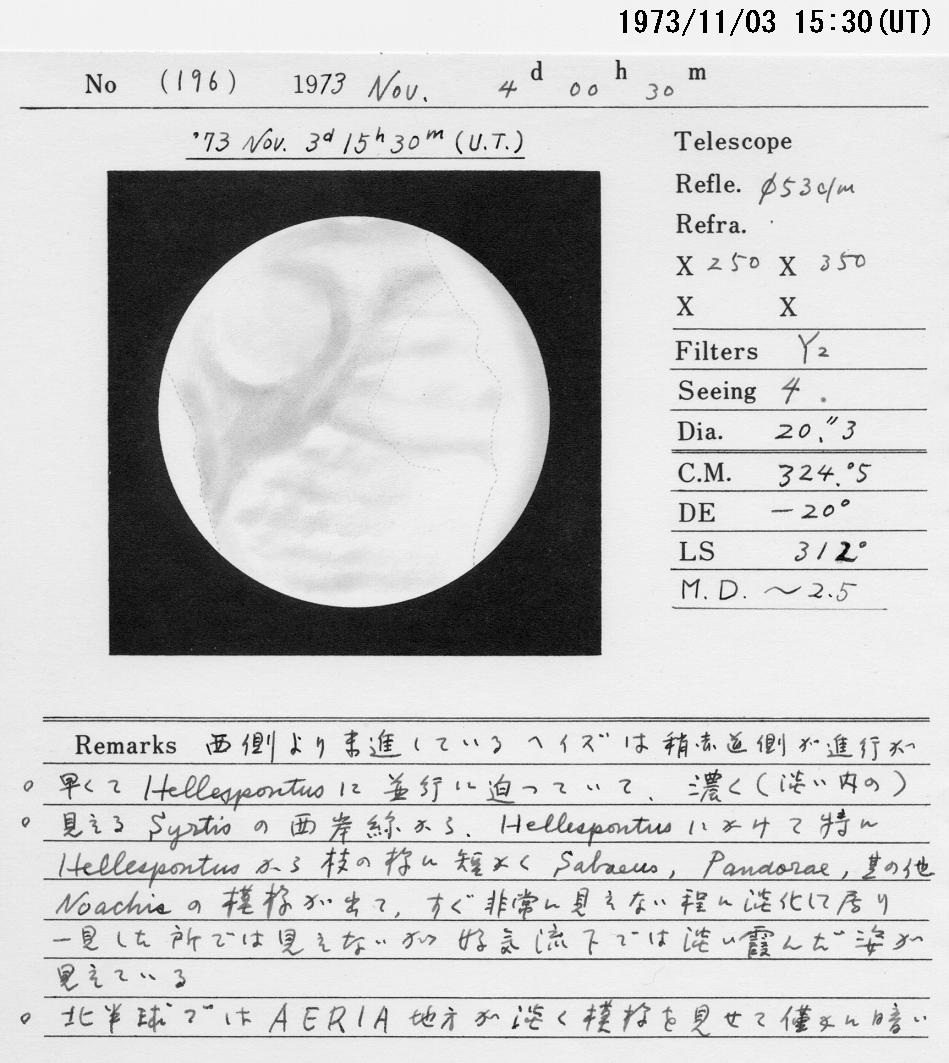 1973/11/03 15:30(UT)
No (196) 1973 Nov. 4 d 00 h 30 m
'73 Nov. 3d 15h 30m (U.T.)
Telescope
Refle. φ53c/m
Refra.
X 250 X 350
X X
Filters Y2
Seeing 4.
Dia. 20."3
C.M. 324.°5
DE -20°
LS 312°
M.D. ~2.5
Remarks 西側より来進しているヘイズは稍赤道側が進行が
○ 早くて Hellespontus に並行に迫っていて、濃く(淡い内の)
○ 見える Syrtis の西岸線から、Hellespontus にかけて特に
Hellespontus から枝の様に短かく Sabaeus, Pandorae, 其の他
Noachis の模様が出て、すぐ非常に見えない程に淡化して居り
一見した所では見えないが 好気流下では淡い霞んだ姿が
見えている
○ 北半球では AERIA 地方が淡く模様を見せて僅かに暗い